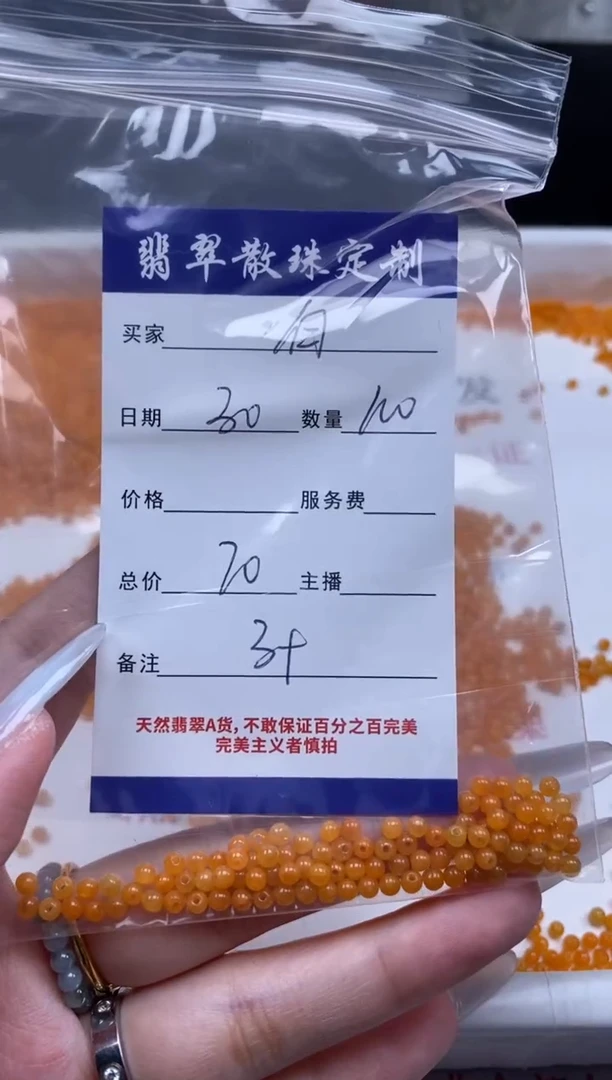 翡翠散珠定制
买家
日期 30 数量
价格 服务费
总价 70 主播
备注 3+
天然翡翠A货,不敢保证百分之百完美
完美主义者慎拍
发
证